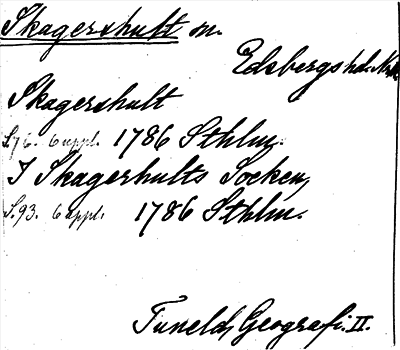 Skagershult sn.
Edsbergs hd. Nrk.
Skagershult
S.76. 6 uppl. 1786 Sthlm.
I Skagerhults Socken,
S.93. 6 uppl. 1786 Sthlm.
Tuneld, Geografi. II.